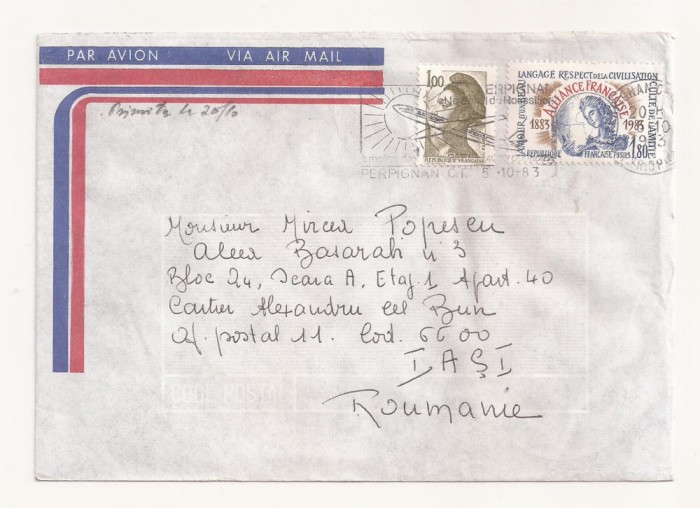 PAR AVION VIA AIR MAIL
Primita la 20/10
1.00
REPUBLIQUE FRANÇAISE
PERPIGNAN
PERPIGNAN C.T. 5-10-83
AMOUR DU BEAU LANGAGE RESPECT DE LA CIVILISATION CULTE DE L'AMITIE
ALLIANCE FRANÇAISE
1883 1983
REPUBLIQUE FRANÇAISE POSTES 1,80
Monsieur Mircea Popescu
Aleea Basarabi n° 3
Bloc D4, Scara A, Etaj.1 Apart. 40
Cartier Alexandru cel Bun
Of. postal 11. Cod. 6600
IAŞI
CODE POSTAL
Roumanie